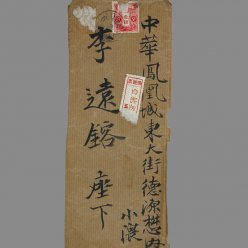 中華鳳凰城東大街德源懋內
小滾
李遠鎔座下